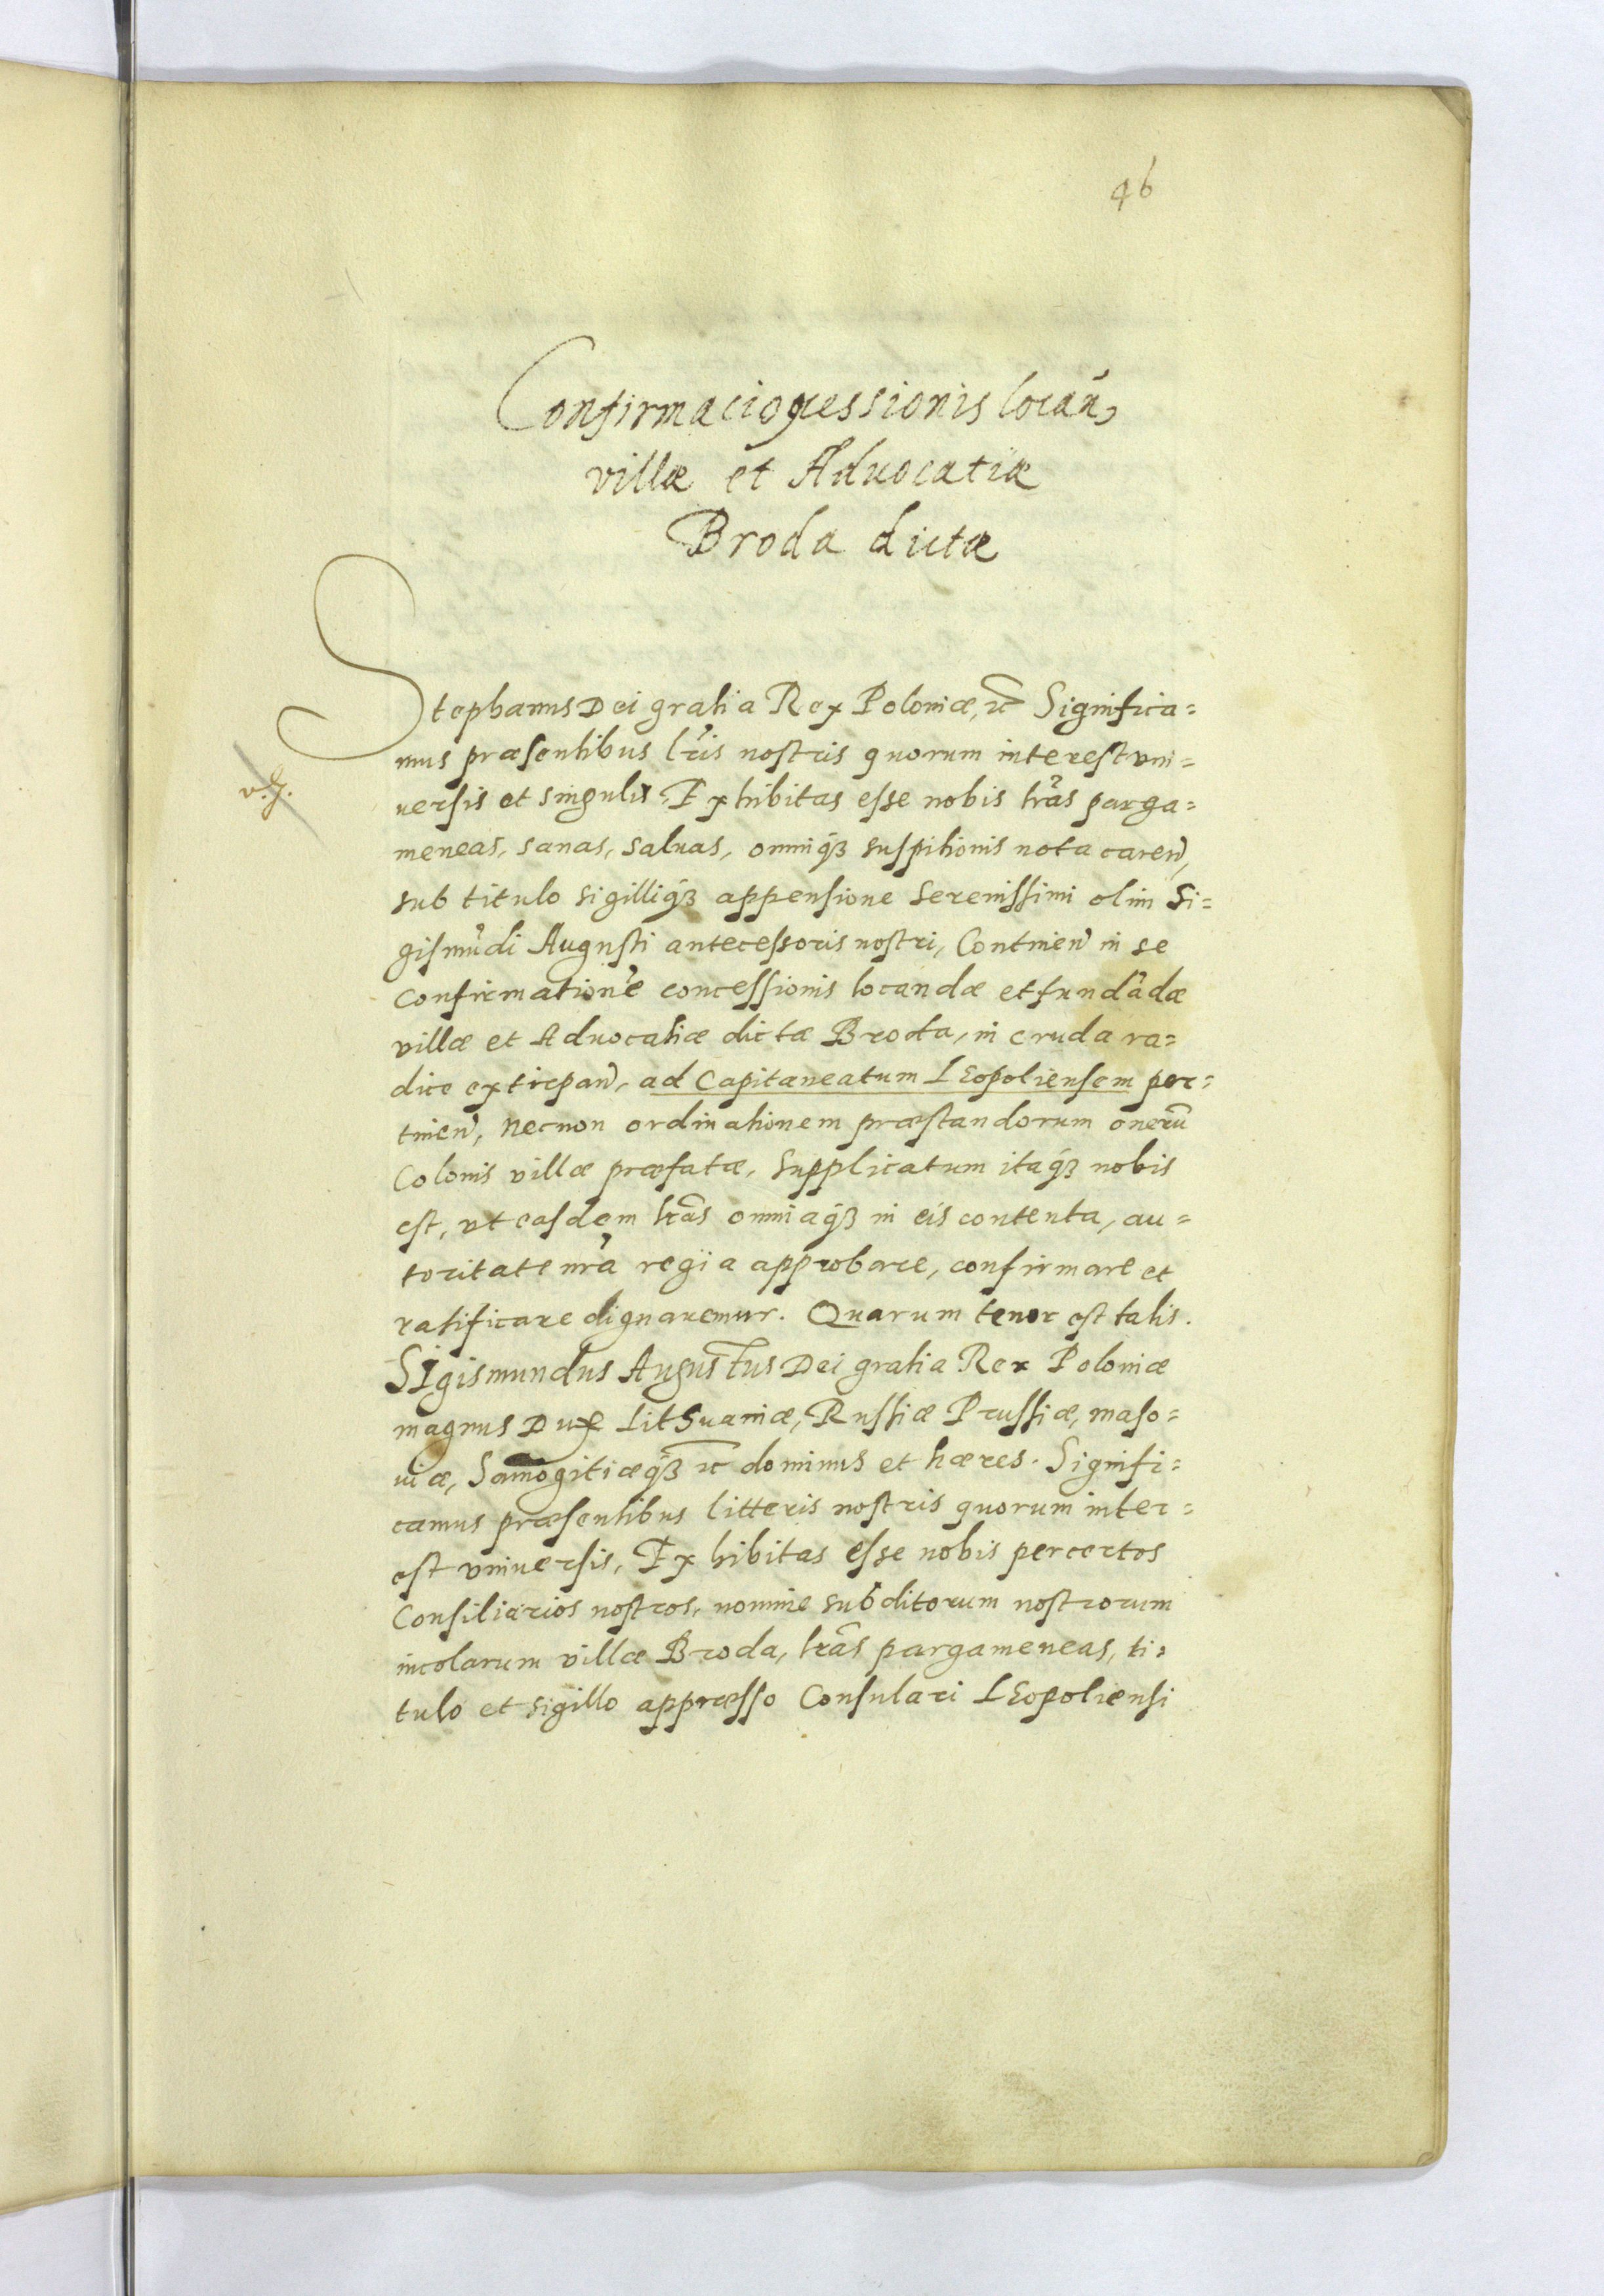 46
Confirmacio 9cessionis locan̄,
villæ et Aduocatiæ
Broda dictæ
Stephanus Dei gratia Rex Poloniæ, ꝛc̃ Significa=
mus præsentibus lr̃is nostris quorum interest vni=
uersis et singulis. Exhibitas esse nobis lr̃as parga=
meneas, sanas, saluas, omniq́ꝫ suspitionis nota caren̄,
sub titulo sigilliq́ꝫ appensione serenissimi olim Si=
gismũdi Augusti antecessoris nostri, Continen̄ in se
Confirmationẽ concessionis locandæ et fundãdæ
villæ et Aduocatiæ dictæ Broda, in cruda ra=
dice extirpan̄, ad Capitaneatum LEopoliensem per=
tinen̄, necnon ordinationem præstandorum onerũ
Colonis villæ præfatæ, supplicatum itaq́ꝫ nobis
est, vt easdem lr̃as omniaq́ꝫ in eis contenta, au=
toritate nr̃a regia approbare, confirmare et
ratificare dignaremur. Quarum tenor est talis.
SIgismundus Augustus Dei gratia Rex Poloniæ
magnus Dux Lithuaniæ, Russiæ Prussiæ, maso=
uiæ, Samogitiæq́ꝫ ꝛc̃ dominus et hæres. Signifi=
camus præsentibus litteris nostris quorum inter=
est vniuersis, Exhibitas esse nobis per certos
Consiliarios nostros, nomine subditorum nostrorum
incolarum villæ Broda, lr̃as pargameneas, ti=
tulo et sigillo appresso Consulari LEopoliensi